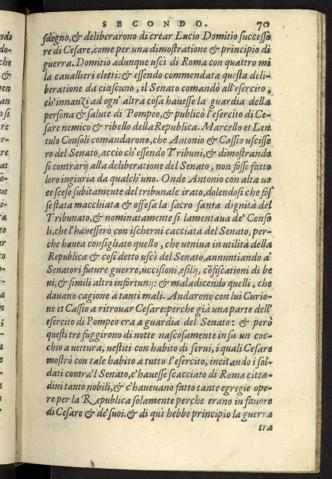 SECONDO. 70
sdegno, & deliberarono di crear Lucio Domitio successo
re di Cesare, come per una dimostratione & principio di
guerra. Domitio adunque uscì di Roma con quattro mi
la cauallieri eletti: & essendo commendata questa deli-
beratione da ciascuno, il Senato comandò all'esercito,
ch'innanzi ad ogn' altra cosa hauesse la guardia della
persona & salute di Pompeo, & publicò l'esercito di Ce-
sare nemico & ribello della Republica. Marcello et Len
tulo Consoli comandarono, che Antonio & Cassio uscisse
ro del Senato, accio ch'essendo Tribuni, & dimostrando
si contrarij alla deliberation del Senato, non fosse fatto
loro ingiuria da qualch'uno. Onde Antonio con alta uo
ce scese subitamente del tribunale irato, dolendosi che fos
se stata macchiata & offesa la sacro santa dignità del
Tribunato, & nominatamente si lamentaua de' Conso
li, che l'hauessero con ischerni cacciata del Senato, per-
che hauea consigliato quello, che ueniua in utilità della
Republica & così detto uscì del Senato, annuntiando a'
Senatori future guerre, uccisioni, esilij, cōfiscationi di be
ni, & simili altri infortunij: & maladicendo quelli, che
dauano cagione a tanti mali. Andarono con lui Curio-
ne et Cassio a ritrouar Cesare: perche già una parte dell'
esercito di Pompeo era a guardia del Senato: & però
questi tre fuggirono di notte nascosamente in su un coc-
chio a uettura, uestiti con habito di serui, i quali Cesare
mostrò con tale habito a tutto l'esercito, incitando i sol-
dati contra'l Senato, c'hauesse scacciato di Roma citta-
dini tanto nobili, & c'haueuano fatto tante egregie ope-
re per la Republica solamente perche erano in fauore
di Cesare & de' suoi. & di quì hebbe principio la guerra
tra